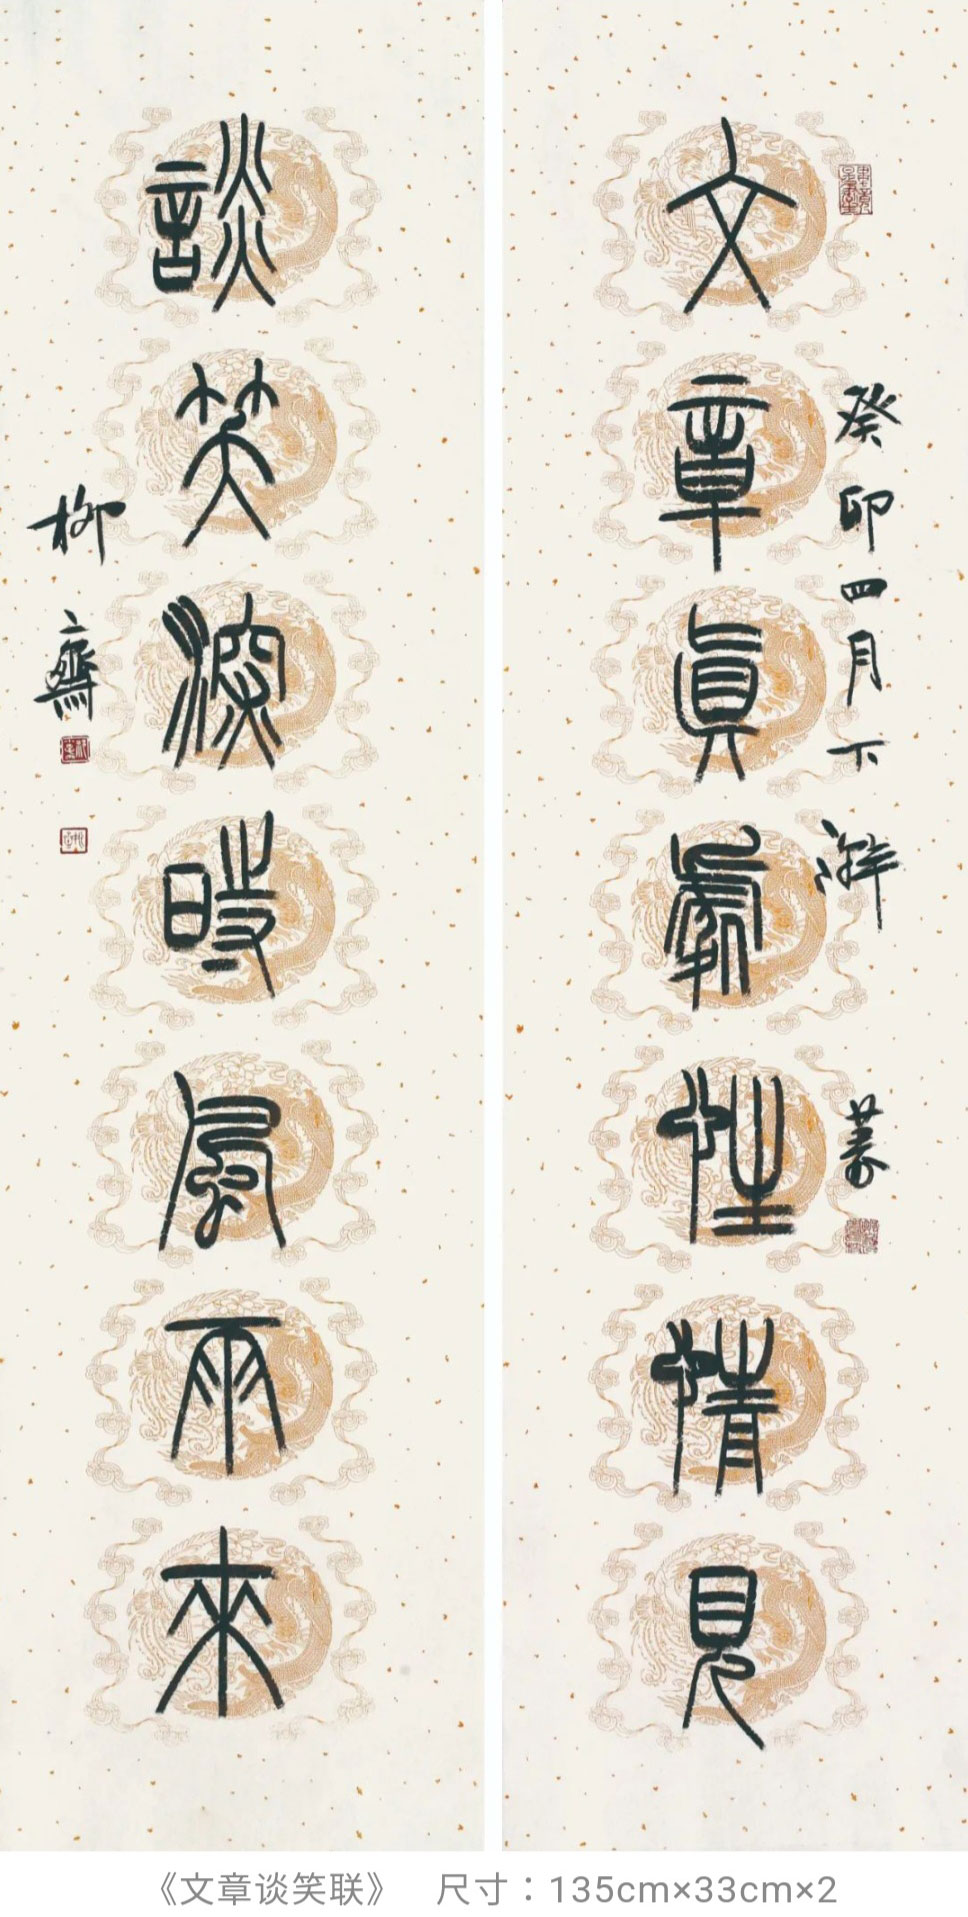 文章真處性情見
癸卯四月下澣
談笑深時風雨來
柳齋
《文章谈笑联》 尺寸：135cm×33cm×2